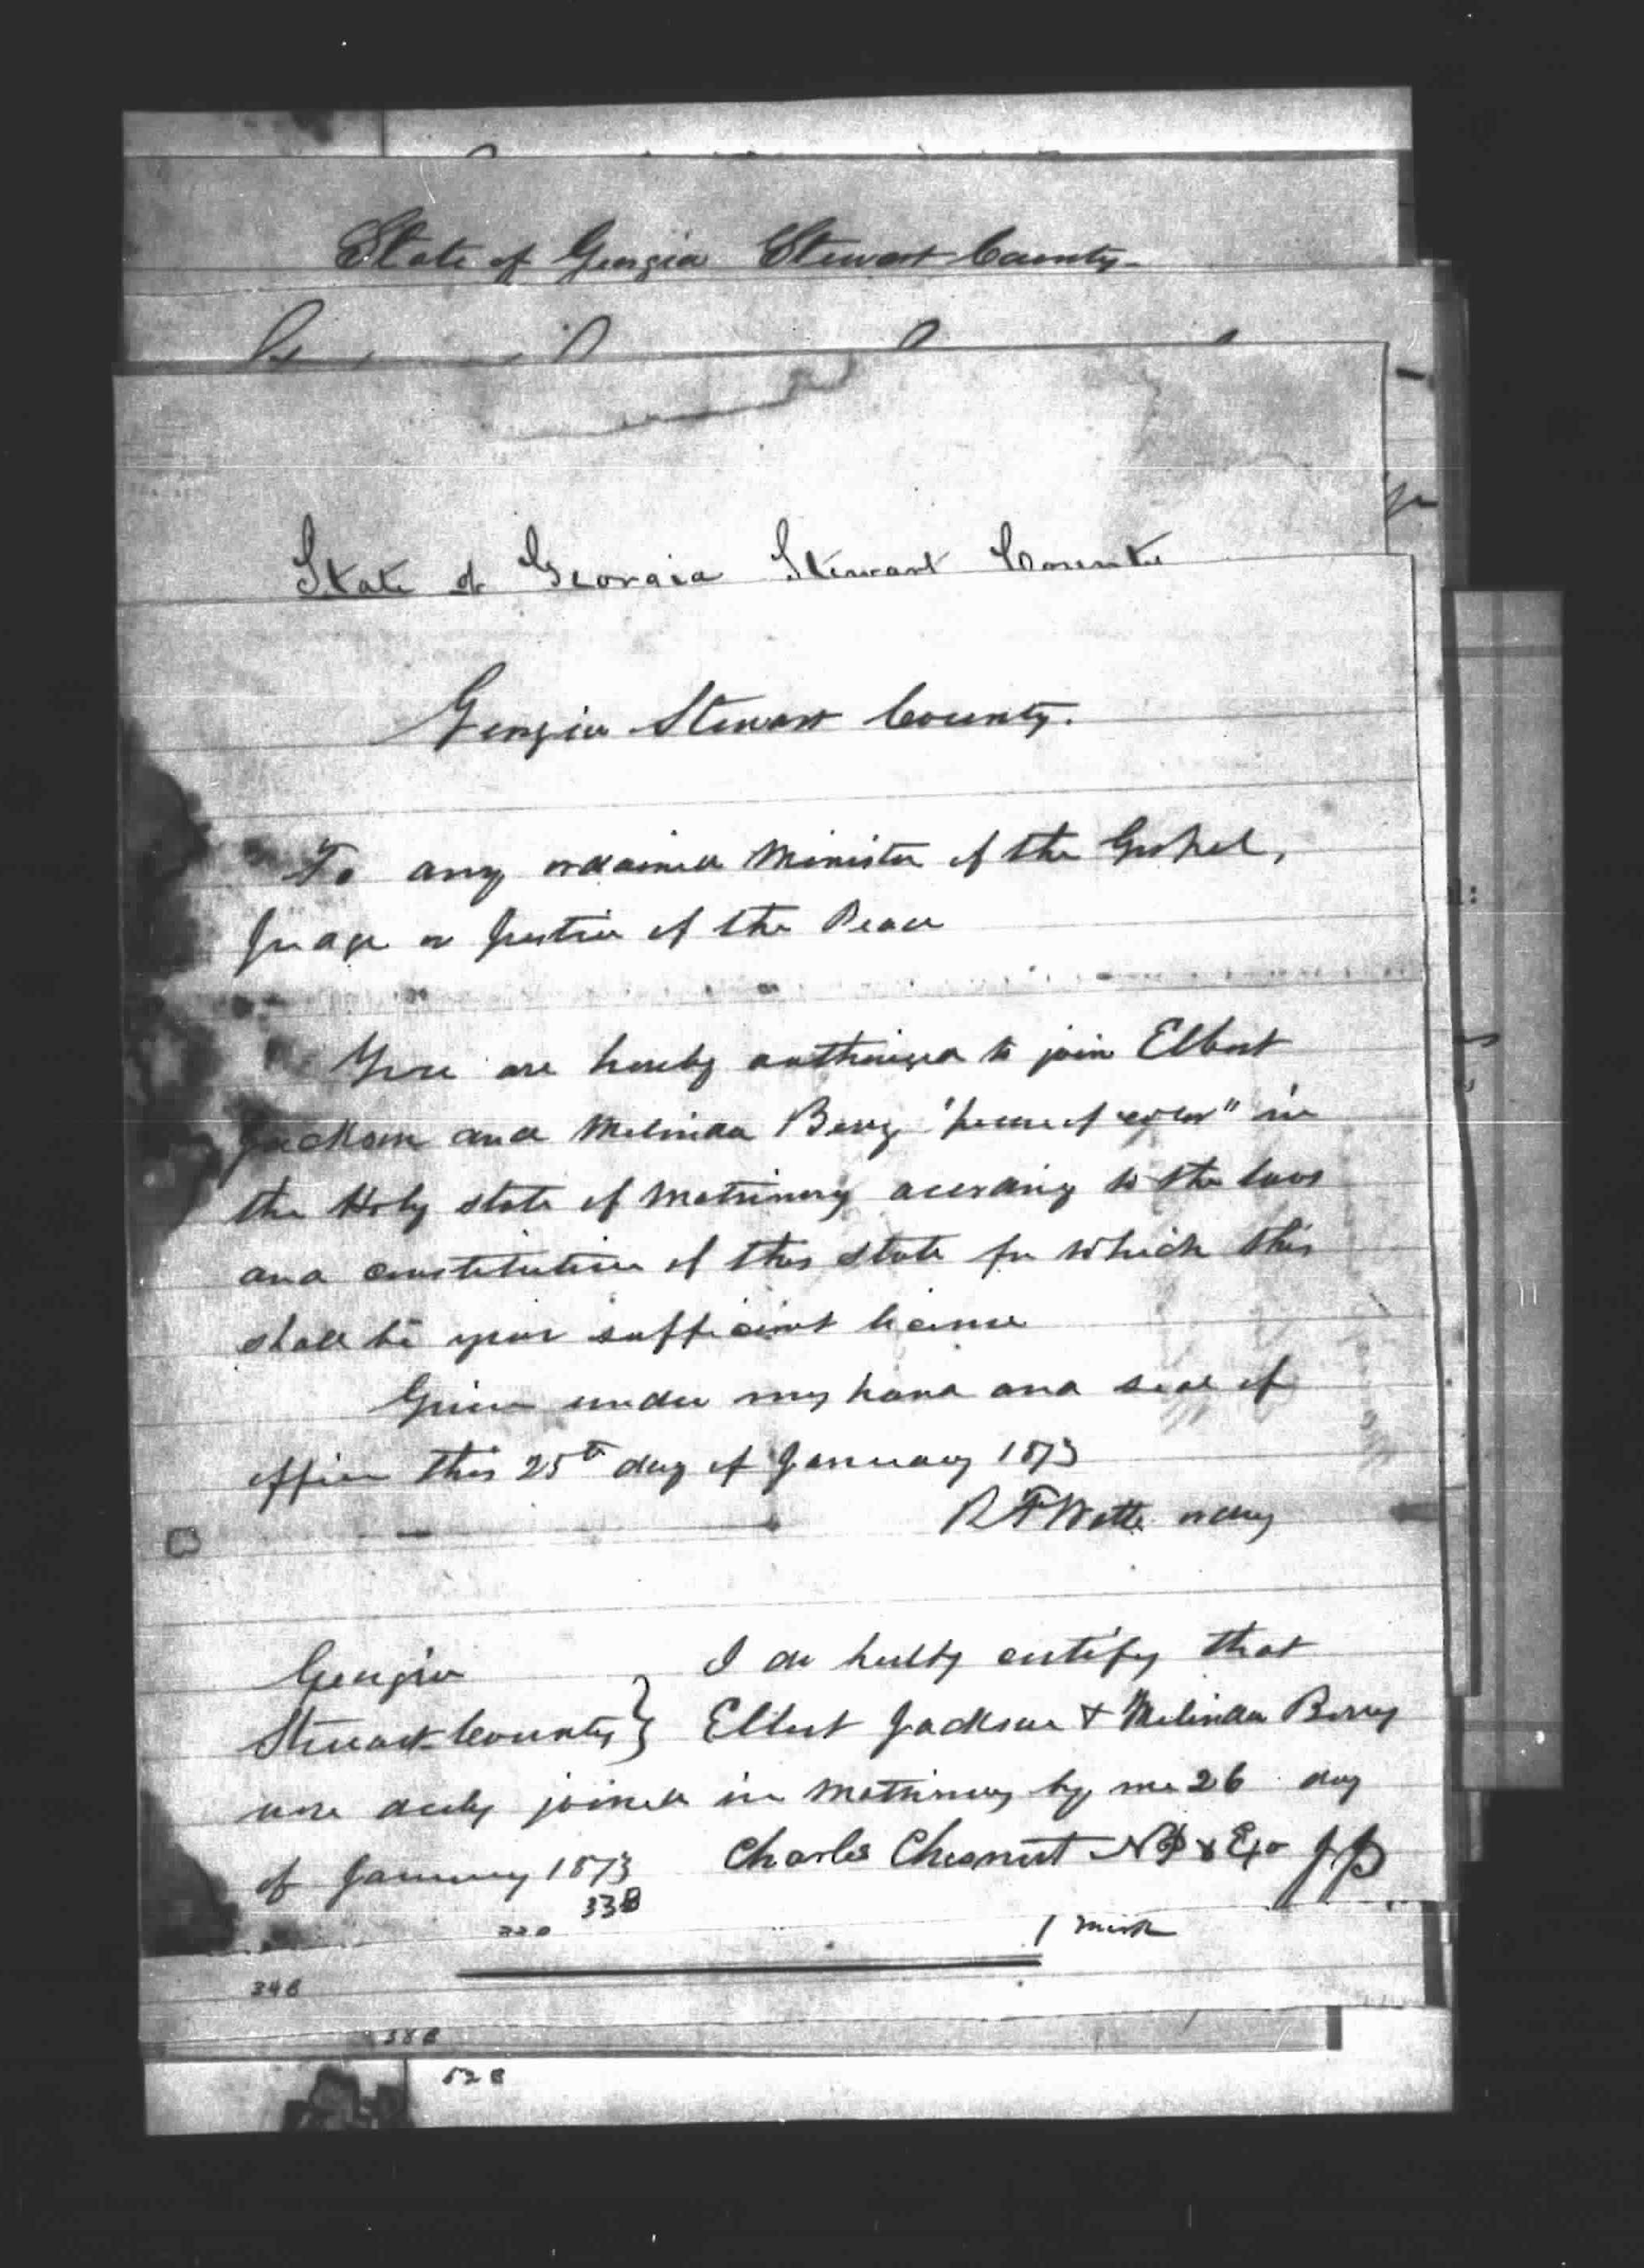 State of Georgia Stewart County
State of Georgia Stewart County
Georgia Stewart County.
To any ordained Minister of the Gospel,
Judge or Justice of the Peace
You are hereby authorized to join Elbert
Jackson and Melinda Berry "persons of color" in
the Holy state of Matrimony according to the laws
and constitution of this state for which this
shall be your sufficient license
Given under my hand and seal of
office this 25th day of January 1873
R F Watts ordry
Georgia
Stewart County }
I do hereby certify that
Elbert Jackson & Melinda Berry
were duly joined in Matrimony by me 26 day
of January 1873
Charles Chesnut NP & Exo JP
33B
34B
52B